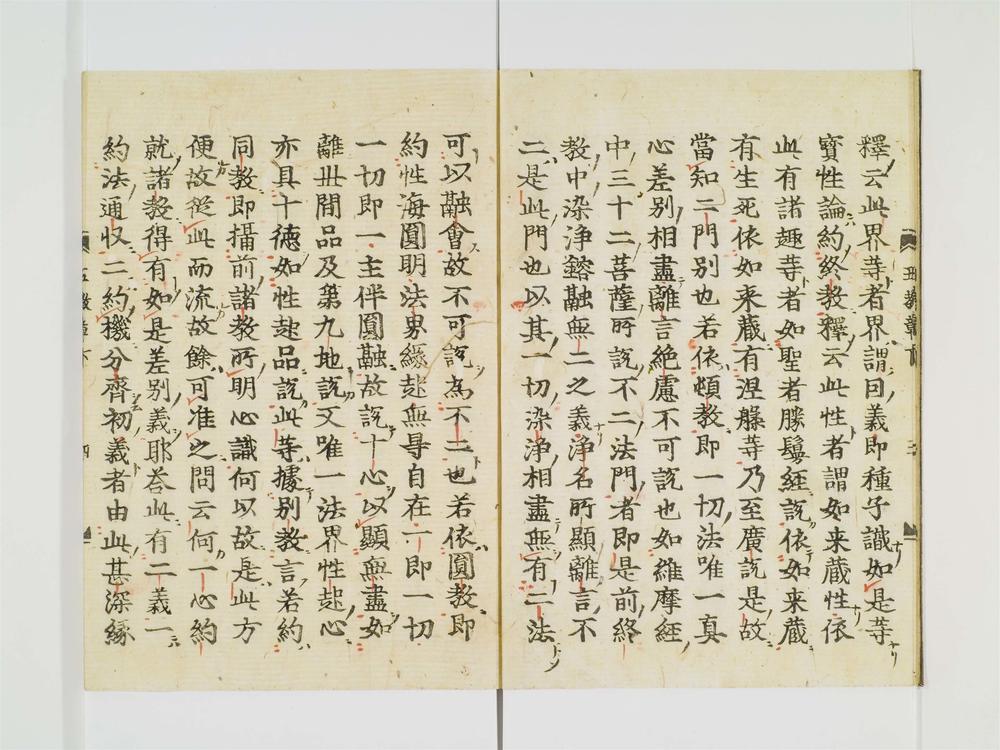 釋云此界等者界謂因義即種子識如是等
寶性論約終教釋云此性者謂如来藏性依
此有諸趣等者如聖者勝鬘經說依如来藏
有生死依如来藏有涅槃等乃至廣說是故
當知二門別也若依頓教即一切法唯一真
心差別相盡離言絶慮不可說也如維摩經
中三十二菩薩所說不二法門者即是前終
教中染淨鎔融無二之義淨名所顯離言不
二是此門也以其一切染淨相盡無有二法
可以融會故不可說為不二也若依圓教即
約性海圓明法界緣起無㝵自在一即一切
一切即一主伴圓融故說十心以顯無盡如
離丗間品及第九地說文唯一法界性起心
亦具十德如性起品說此等據別教言若約
同教即攝前諸教所明心識何以故是此方
便故從此而流故餘可准之問云何一心約
就諸教得有如是差別義耶答此有二義一
約法通収二約機分齊初義者由此甚深緣